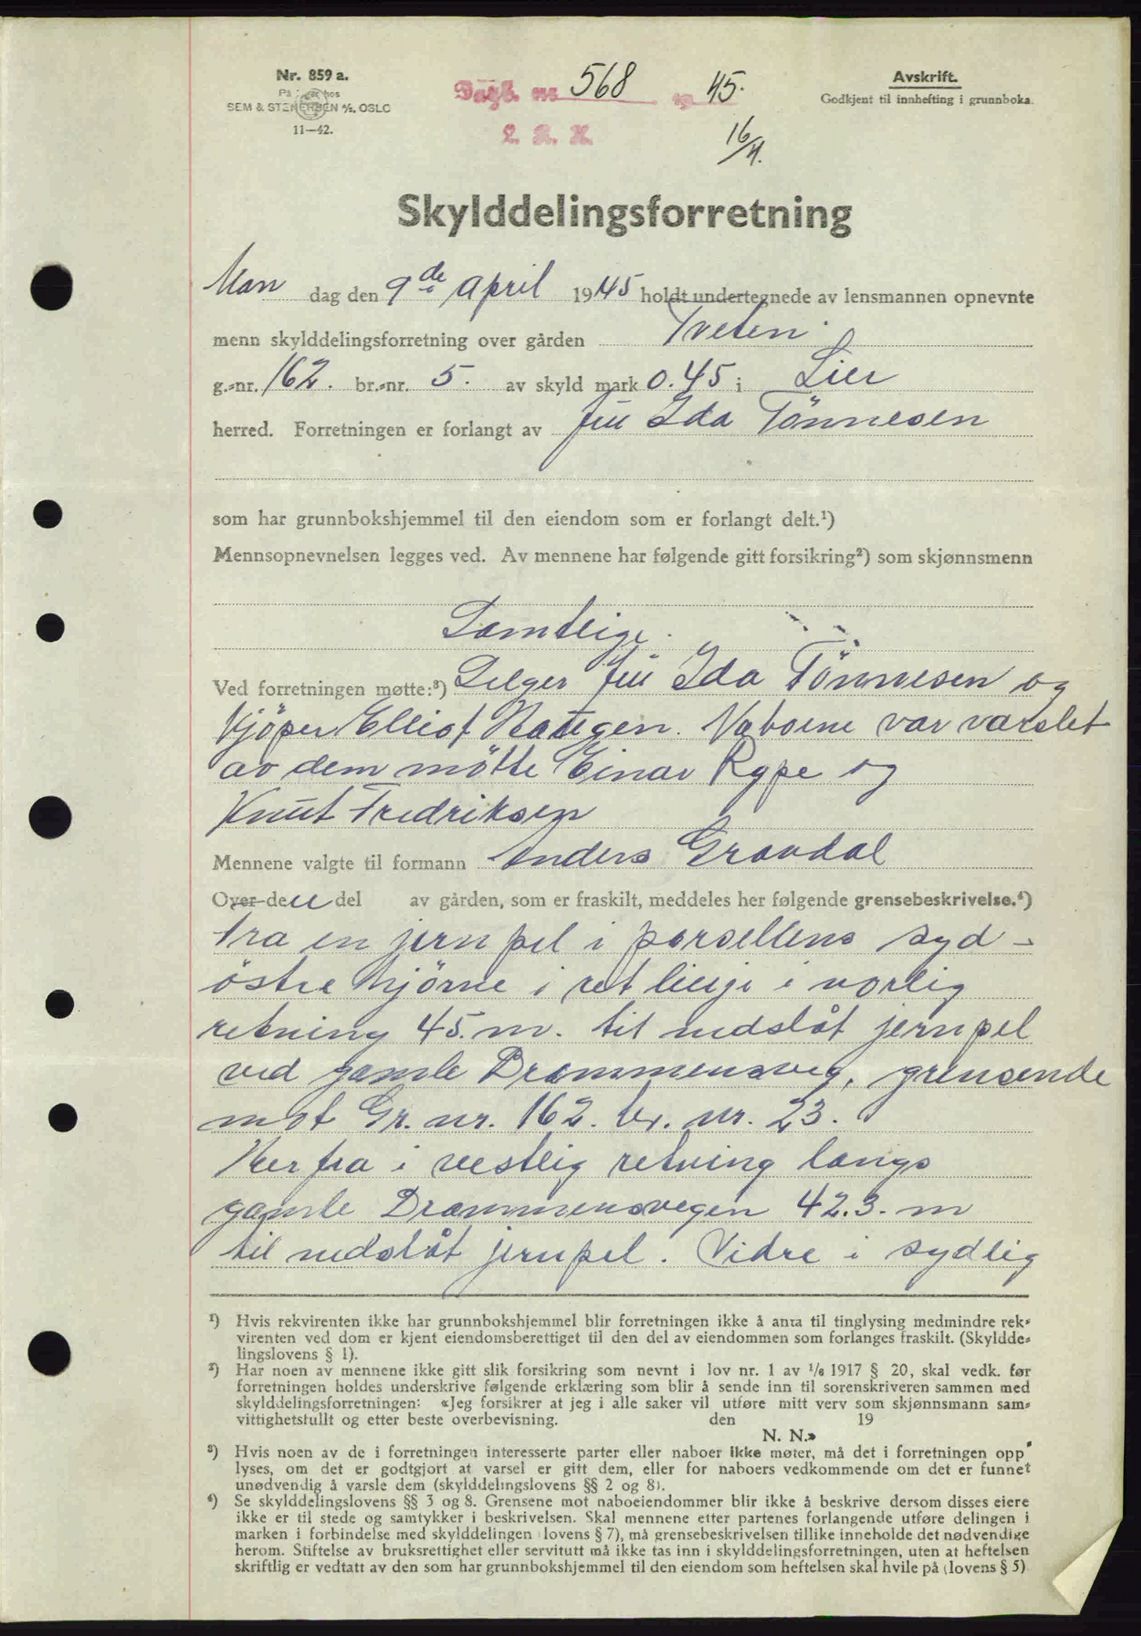 Nr. 859 a.
På lager hos
SEM & STENERSEN A/S, OSLO
11—42.
Dagb. nr. 568 19 45.
L. R. K.
16/4.
Avskrift.
Godkjent til innhefting i grunnboka.
Skylddelingsforretning
Man dag den 9de april 1945 holdt undertegnede av lensmannen opnevnte
menn skylddelingsforretning over gården Tveten.
g.-nr. 162. br.-nr. 5. av skyld mark 0.45 i Lier
herred. Forretningen er forlangt av Fru Ida Tönnesen
som har grunnbokshjemmel til den eiendom som er forlangt delt.¹)
Mennsopnevnelsen legges ved. Av mennene har følgende gitt forsikring²) som skjønnsmenn
Samtlige.
Ved forretningen møtte:³) Selger Fru Ida Tönnesen og
Kjöper Elliot Haugen. Naboene var varslet
av dem mötte Einar Rype og
Knut Fredriksen
Mennene valgte til formann Anders Gravdal
Over den del av gården, som er fraskilt, meddeles her følgende grensebeskrivelse.⁴)
Fra en jernpel i parsellens syd-
östre hjörne i ret linje i norlig
retning 45. m. til nedslåt jernpel
ved gamle Drammensveg, grensende
mot Gr. nr. 162. br. nr. 23.
Herfra i vestlig retning langs
gamle Drammensvegen 42.3. m
til nedslåt jernpel. Vidre i sydlig
¹) Hvis rekvirenten ikke har grunnbokshjemmel blir forretningen ikke å anta til tinglysing medmindre rek-
virenten ved dom er kjent eiendomsberettiget til den del av eiendommen som forlanges fraskilt. (Skyldde-
lingslovens § 1).
²) Har noen av mennene ikke gitt slik forsikring som nevnt i lov nr. 1 av 1/6 1917 § 20, skal vedk. før
forretningen holdes underskrive følgende erklæring som blir å sende inn til sorenskriveren sammen med
skylddelingsforretningen: «Jeg forsikrer at jeg i alle saker vil utføre mitt verv som skjønnsmann sam-
vittighetsfullt og etter beste overbevisning. den 19
N. N.»
³) Hvis noen av de i forretningen interesserte parter eller naboer ikke møter, må det i forretningen opp-
lyses, om det er godtgjort at varsel er gitt dem, eller for naboers vedkommende om det er funnet
unødvendig å varsle dem (skylddelingslovens §§ 2 og 8).
⁴) Se skylddelingslovens §§ 3 og 8. Grensene mot naboeiendommer blir ikke å beskrive dersom disses eiere
ikke er til stede og samtykker i beskrivelsen. Skal mennene etter partenes forlangende utføre delingen i
marken i forbindelse med skylddelingen (lovens § 7), må grensebeskrivelsen tillike inneholde det nødvendige
herom. Stiftelse av bruksrettighet eller servitutt må ikke tas inn i skylddelingsforretningen, uten at heftelsen
skriftlig er vedtatt av den som har grunnbokshjemmel til den eiendom som heftelsen skal hvile på (lovens § 5)